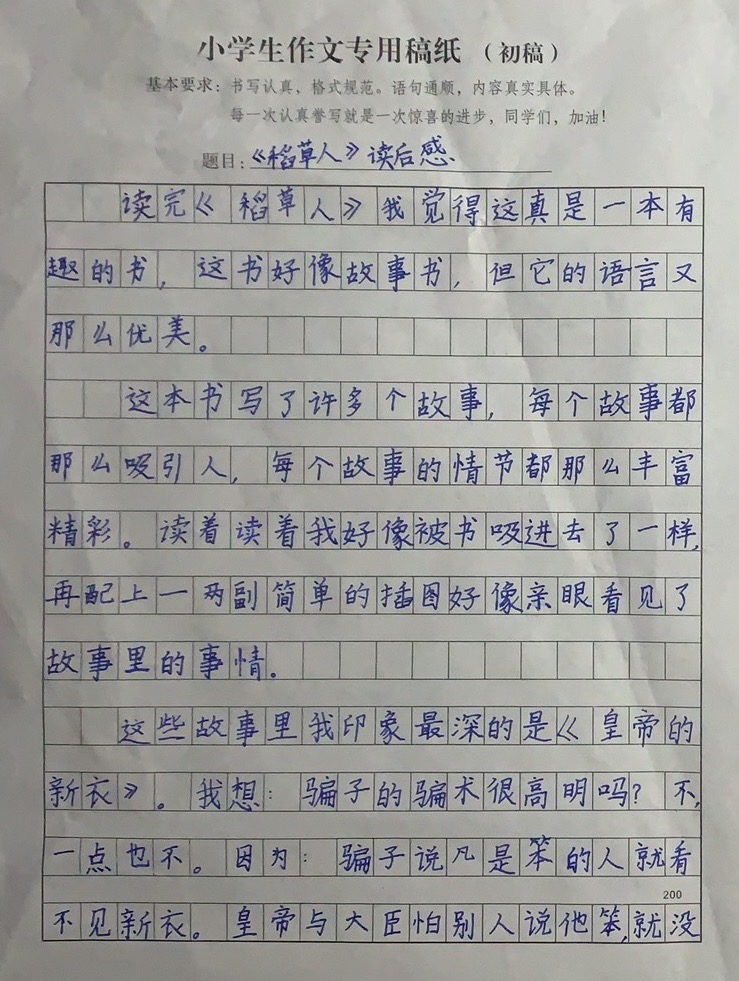 小学生作文专用稿纸（初稿）
基本要求：书写认真，格式规范。语句通顺，内容真实具体。
每一次认真誊写就是一次惊喜的进步，同学们，加油！
题目：《稻草人》读后感
读完《稻草人》我觉得这真是一本有
趣的书，这书好像故事书，但它的语言又
那么优美。
这本书写了许多个故事，每个故事都
那么吸引人，每个故事的情节都那么丰富
精彩。读着读着我好像被书吸进去了一样，
再配上一两副简单的插图好像亲眼看见了
故事里的事情。
这些故事里我印象最深的是《皇帝的
新衣》。我想：骗子的骗术很高明吗？不，
一点也不。因为：骗子说凡是笨的人就看
200
不见新衣。皇帝与大臣怕别人说他笨，就没